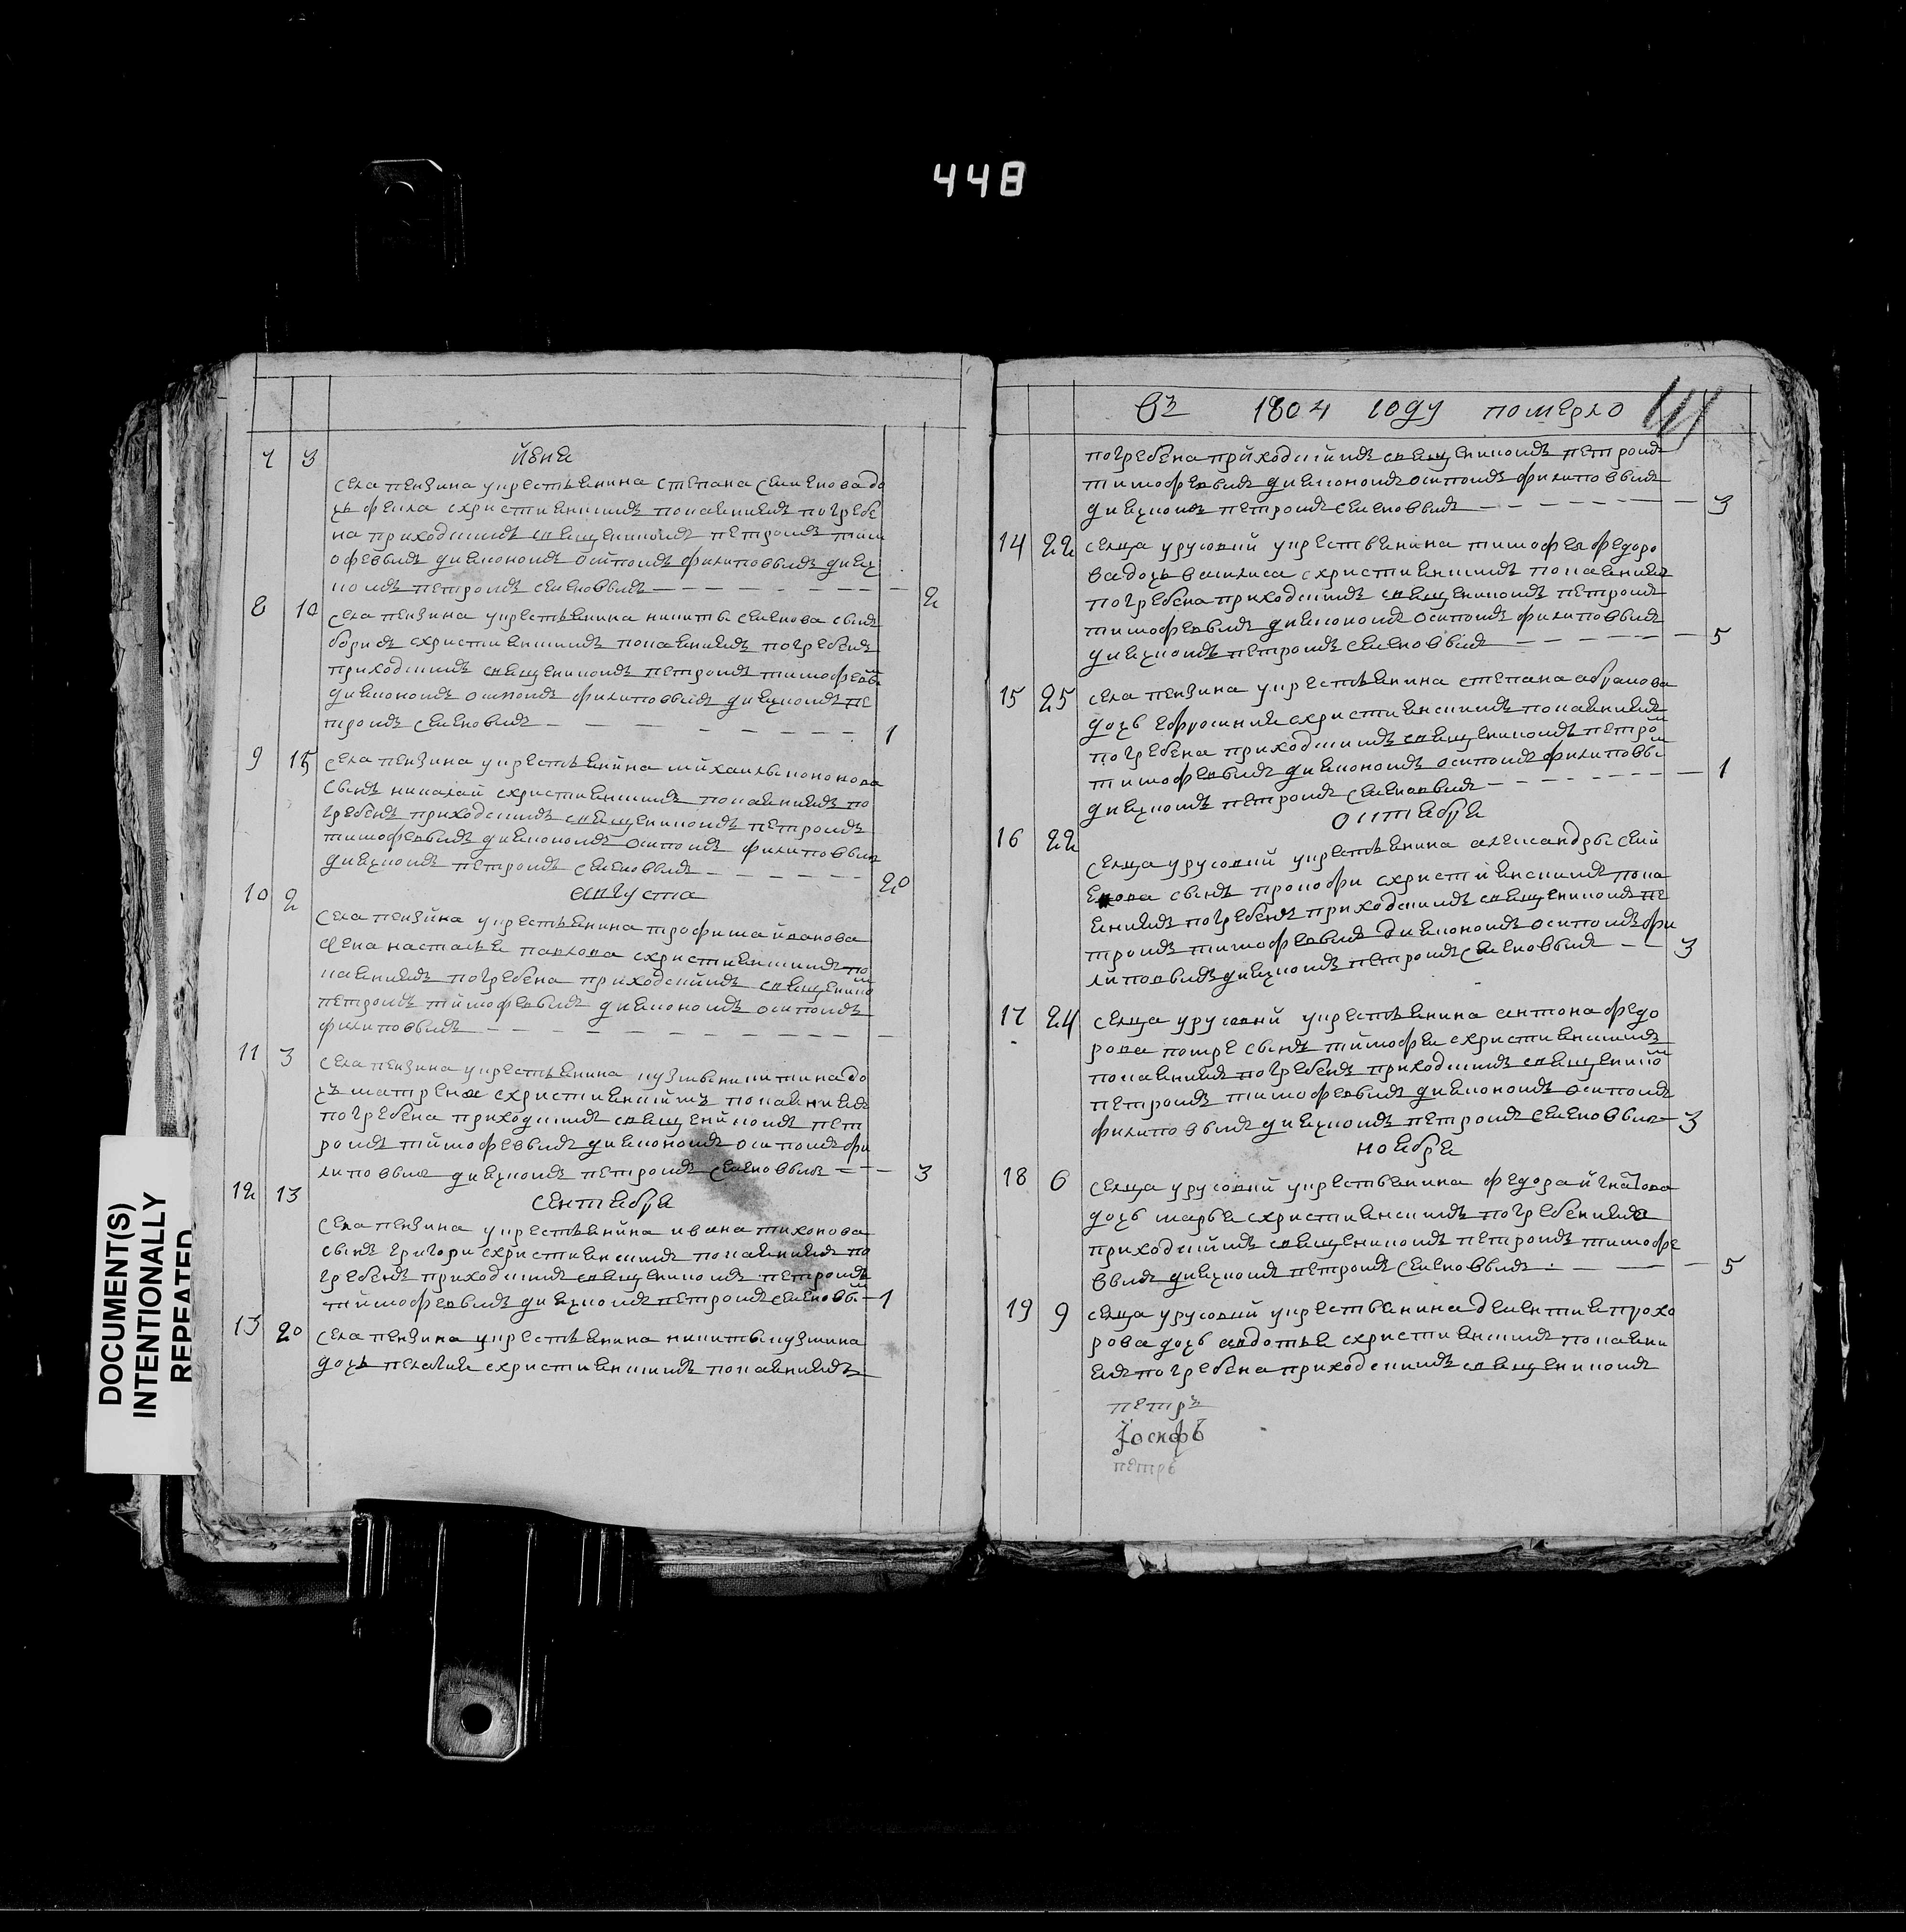 448
DOCUMENT(S)
INTENTIONALLY
REPEATED
7 3 июня
села пензина укрестьянина степана семенова до
чь фекла схристиянскимъ покаяниемъ погребе
на приходскимъ священникомъ петромъ тим
офеевымъ диакономъ осипомъ филиповымъ дияч
комъ петромъ семеновымъ 2
8 10 села пензина укрестьянина никиты семенова сынъ
борисъ схристиянскимъ покаяниемъ погребенъ
приходскимъ священникомъ петромъ тимофеевы
диакономъ осипомъ филиповымъ диячкомъ пе
тромъ семеновымъ 1
9 15 села пензина укрестьянина михаилы кононова
сынъ николай схристиянскимъ покаяниемъ по
гребенъ приходскимъ священникомъ петромъ
тимофевымъ диакономъ осипомъ филиповым
диячкомъ петромъ семеновымъ 20
августа
10 2 села пензина укрестьянина трофима иванова
жена настасья павлова схристиянскимъ по
каяниемъ погребена приходскимъ священико
петромъ тимофевымъ диакономъ осипомъ
филиповымъ
11 3 села пензина укрестьянина кузмы никитина до
чь матрена схристиянскимъ покаяниемъ
погребена приходскимъ священикомъ пет
ромъ тимофеевымъ диакономъ осипомъ фи
липовым диячкомъ петромъ семеновым 3
сентября
12 13 села пензина укрестьянина ивана тихонова
сынъ григори схристиянскимъ покаяниемъ по
гребенъ приходскимъ священикомъ петромъ
тимофевымъ диячкомъ петромъ семеновы 1
13 20 села пензина укрестьянина никиты кузмина
дочь пелагия схристиянскимъ покаяниемъ
въ 1804 году померло
погребена приходскимъ священикомъ петромъ
тимофевымъ диакономъ осипомъ филиповымъ
диячкомъ петромъ семеновымъ 3
14 22 селца урусовки укрестьянина тимофея федоро
ва дочь василиса схристиянскимъ покаянием
погребена приходскимъ священикомъ петромъ
тимофевымъ диакономъ осипомъ филиповымъ
диячкомъ петромъ семеновымъ 5
15 25 села пензина укрестьянина степана абрамова
дочь ефросиния схристиянскимъ покаяниемъ
погребена приходскимъ священикомъ петро
тимофевымъ диакономъ осипомъ филиповы
диячкомъ петромъ семеновымъ 1
октября
16 22
селца урусовки укрестьянина александры сем
енова сынъ прокофи схристиянскимъ пока
яниемъ погребенъ приходскимъ священикомъ пе
тромъ тимофевымъ диакономъ осипомъ фи
липовымъ диячкомъ петромъ семеновымъ 3
17 24 селца урусовки укрестьянина антона федо
рова помре сынъ тимофеи схристиянскимъ
покаяниемъ погребенъ приходскимъ священико
петромъ тимофевымъ диакономъ осипомъ
филиповымъ диячкомъ петромъ семеновым 3
ноября
18 6 селца урусовки укрестьянина федора игнатова
дочь марья схристиянскимъ погребением
приходскимъ священикомъ петромъ тимофе
евымъ диячкомъ петромъ семеновымъ 5
19 9 селца урусовки укрестьянина дементия прохо
рова дочь авдотья схристиянскимъ покаяни
ем погребена приходскимъ священикомъ
петръ
Iосифъ
петръ